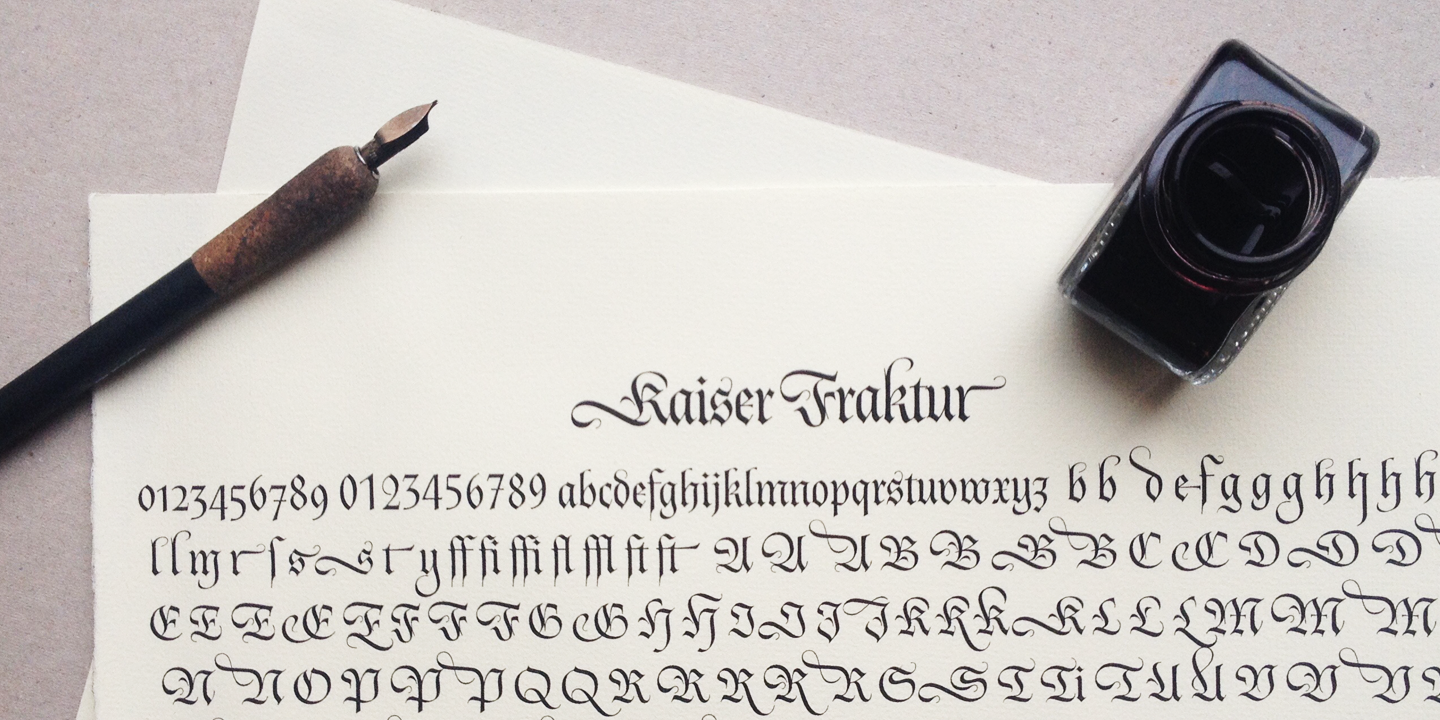 Kaiser Fraktur
0123456789 0123456789 abcdefghijklmnopqrstuvwxyz b b d e f g g g h h h h
l l m r ſ s s t y ff fi ffi fl ffl ſi ſt A A A B B B B C C D D D
E E E E F F F F G G H H I I J J K K K K L L L M M M
N N O P P P Q Q R R R R R S S T Ti T U U V V V